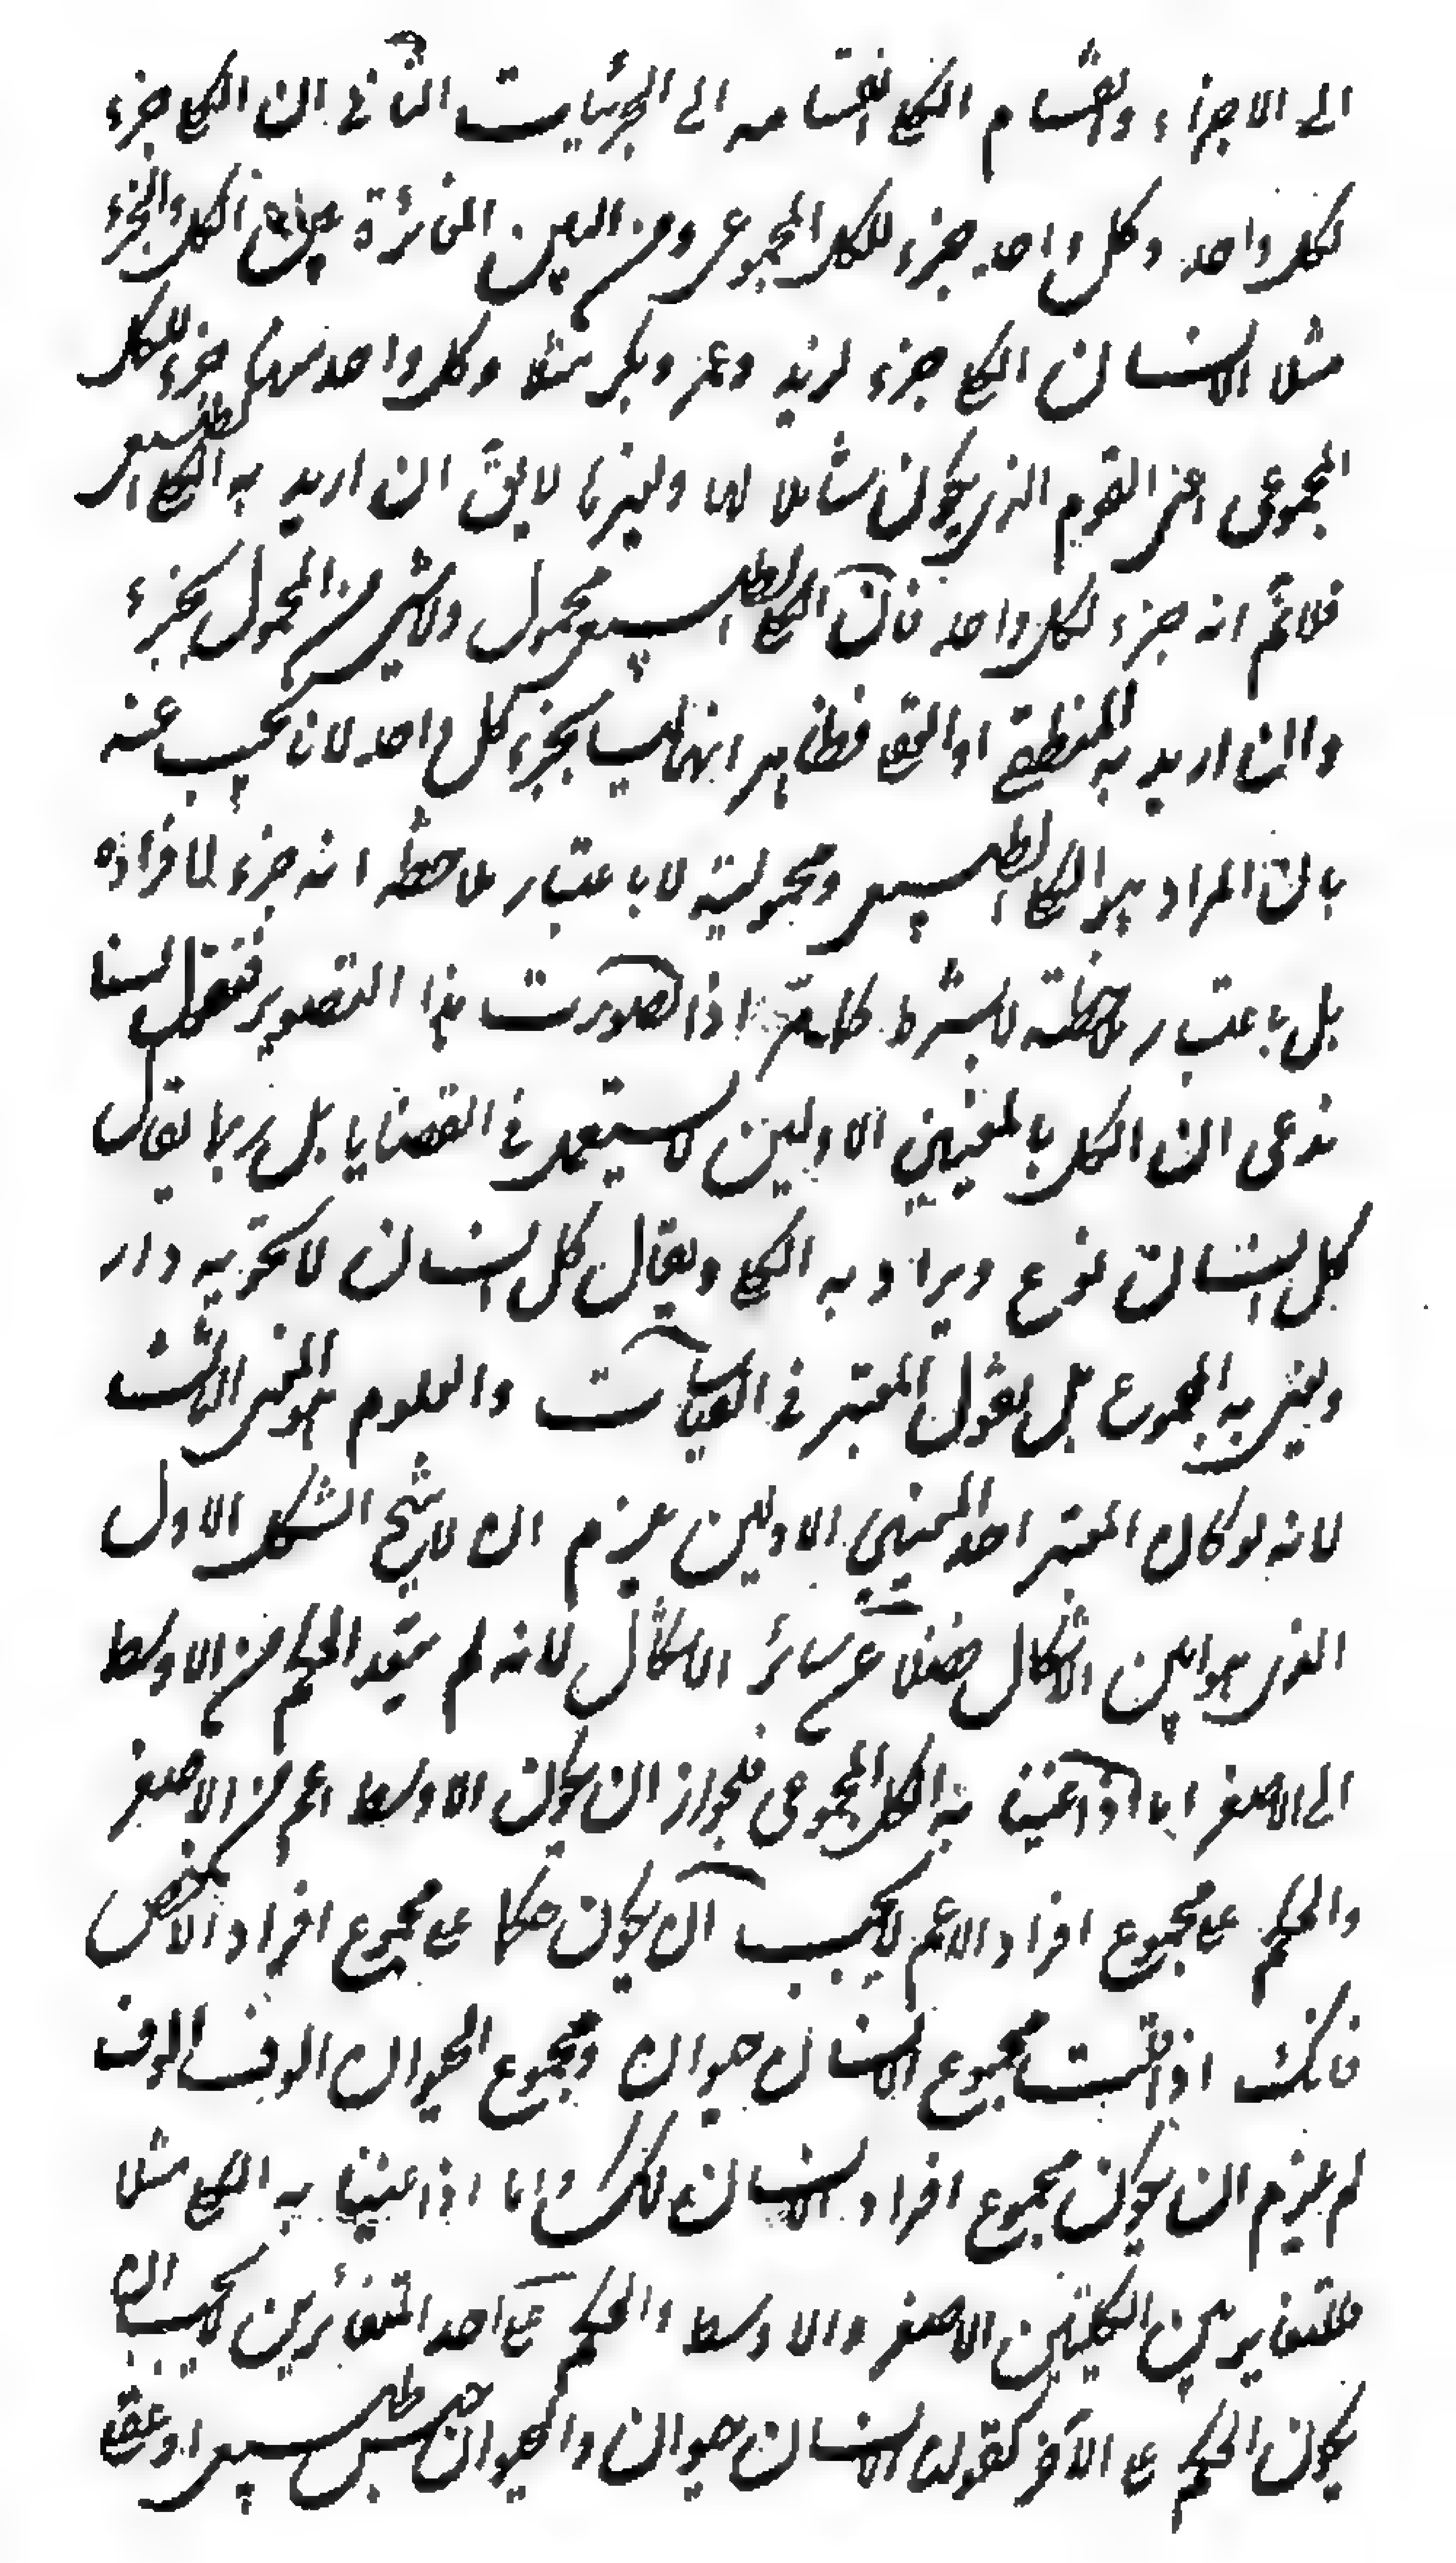 الى الاجزاء وانقسام الكلى انقسامه الى الجزئيات الثانى ان الكلى جزء
لكل واحد وكل واحد جزء للكل المجموعى ومن البين المغائرة بين الكل والجزء
مثلا الانسان الكلى جزء لزيد وعمر وبكر مثلا وكل واحد منها جزء للكل
المجموعى اعنى القوم الذى يكون شاملا لها ولغيرها لايق ان اريد به الكلى الطبيعى
فلانم انه جزء لكل واحد فان الكلى الطبيعى محمول ولاشئ من المحمول بجزء
وان اريد به المنطقى او العقلى فظاهر انهما ليسا بجزء كل واحد لانا نجيب عنه
بان المراد هو الكلى الطبيعى ومحموليته لا باعتبار ملاحظة انه جزء لافراده
بل باعتبار ملاحظته لابشرط كما مر اذا تصورت هذا التصوير فنقول لسنا
ندعى ان الكل بالمعنيين الاولين لا يستعمل فى القضايا بل ربما يقال
كل انسان نوع ويراد به الكلى ويقال كل انسان لا تحويه دار
ويعنى به المجموع بل نقول المعتبر فى القياسات والعلوم هو المعنى الثالث
لانه لو كان المعتبر احد المعنيين الاولين يلزم ان لا ينتج الشكل الاول
الذى هو ابين الاشكال فضلا عن سائر الاشكال لانه لم يتعد الحكم من الاوسط
الى الاصغر اما اذا عنينا به الكل المجموعى فلجواز ان يكون الاوسط اعم من الاصغر
والحكم على مجموع افراد الاعم لا يجب ان يكون حكما على مجموع افراد الاخص
فانك اذا قلت مجموع الانسان حيوان ومجموع الحيوان الوف الوف
لم يلزم ان يكون مجموع افراد الانسان كذلك واما اذا عنينا به الكلى مثلا
فلتغاير بين الكليتين الاصغر والاوسط والحكم على احد المتغائرين لا يجب ان
يكون الحكم على الآخر كقولنا الانسان حيوان والحيوان جنس طبيعى او عقلى